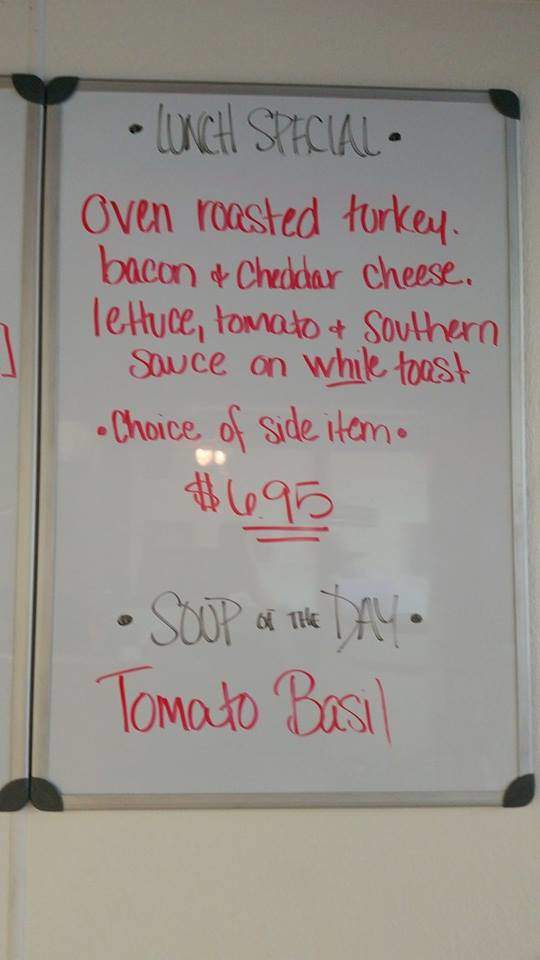 • LUNCH SPECIAL •
Oven roasted turkey.
bacon & Cheddar cheese.
lettuce, tomato & Southern
sauce on while toast
• Choice of side item •
$6.95
• SOUP OF THE DAY •
Tomato Basil
]